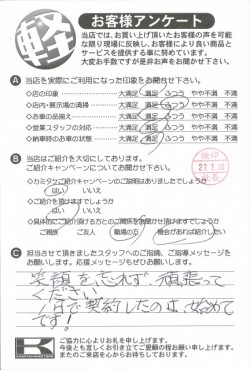 軽
お客様アンケート
当店では、お買い上げ頂いたお客様の声を可能
な限り現場に反映し、お客様により良い商品と
サービスを提供する事に努めています。
大変お手数ですが是非お声をお聞かせ下さい。
A 当店を実際にご利用になった印象をお聞かせ下さい。
◇店の印象 大満足 満足 ふつう やや不満 不満
◇店内・展示場の清掃 大満足 満足 ふつう やや不満 不満
◇お車の品揃え 大満足 満足 ふつう やや不満 不満
◇営業スタッフの対応 大満足 満足 ふつう やや不満 不満
◇納車時のお車の状態 大満足 満足 ふつう やや不満 不満
B 当店はご紹介を大切にしております。
ご紹介キャンペーンについてお聞かせ下さい。
◇カミタケご紹介キャンペーンの説明はありましたでしょうか
はい いいえ
◇ご紹介を頂けますでしょうか
はい いいえ
◇具体的にご紹介頂ける方とのご関係をお聞かせ頂けますでしょうか
ご親戚 ご友人 職場の方 機会があれば紹介したい
C 担当させて頂きましたスタッフへのご指摘、ご指導メッセージを
お願いします。応援メッセージもぜひお願いします。
笑顔を忘れず 頑張って
ください
で契約したのは始めて
です!
K
ご協力に心よりお礼を申し上げます。
今後とも宜しくお引き立てご愛顧の程お願い申し上げます。
またのご来店を心からお待ちしております。